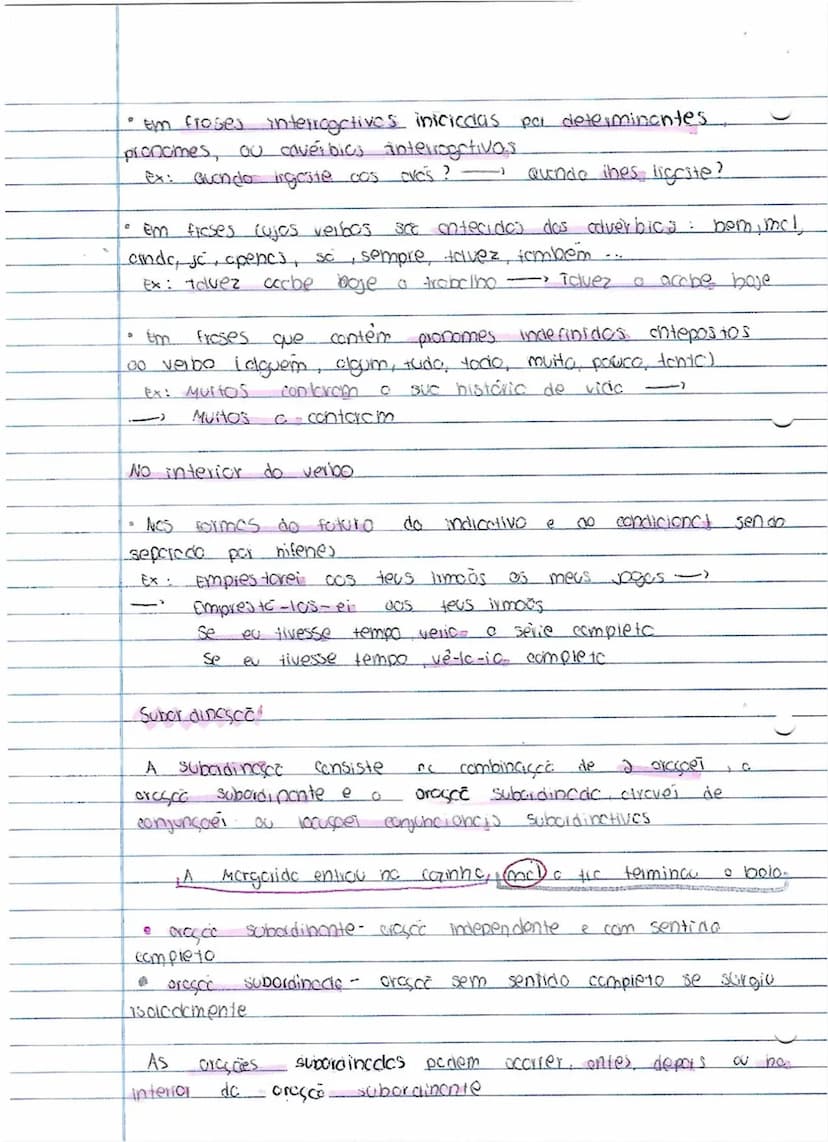 • Em frases interrogativas iniciadas por determinantes,
pronomes, ou advérbios interrogativos
Ex: Quando ligaste aos avós? → Quando lhes ligaste?
• Em frases cujos verbos são antecidos dos advérbios: bem, mal,
ainda, já, apenas, só, sempre, talvez, também ...
Ex: talvez acabe hoje o trabalho → Talvez o acabe hoje
• Em frases que contêm pronomes indefinidos antepostos
ao verbo (alguém, algum, tudo, todo, muito, pouco, tanto)
Ex: Muitos contaram a sua história de vida →
→ Muitos a contaram
No interior do verbo
• Nas formas do futuro do indicativo e no condicional sendo
separado por hifenes
Ex: Emprestarei aos teus irmãos os meus jogos →
→ Emprestá-los-ei aos teus irmãos
Se eu tivesse tempo veria a série completa
Se eu tivesse tempo, vê-la-ia completa
Subordinação!
A subordinação consiste na combinação de 2 oraçoẽ, a
oração subordinante e a oração subordinada, através de
conjunçoẽ ou locuçoẽ conjuncionais subordinativas
A Margarida entrou na cozinha, mal a tia terminou o bolo.
• oração subordinante - oração independente e com sentido
completo
• oração subordinada - oração sem sentido completo se surgiu
isoladamente
As orações subordinadas podem ocorrer, antes, depois ou no
interior da oração subordinante